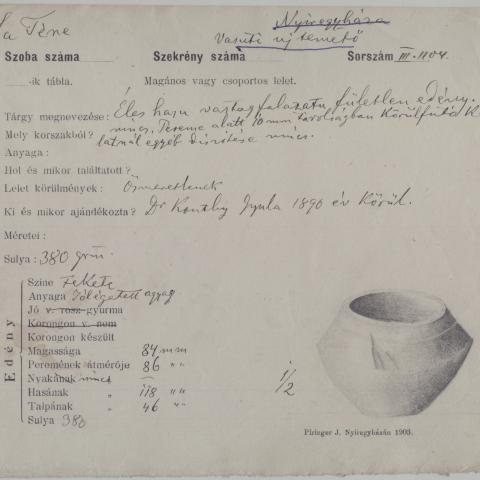 Nyíregyháza
La Téne
Vasúti új temető
Szoba száma Szekrény száma Sorszám III. 1104.
-ik tábla. Magános vagy csoportos lelet.
Tárgy megnevezése: Éles hasu vastagfalazatu, fületlen edény.
Mely korszakból? nincs, Pereme alatt 10 mm távolságban Körülfutó
egyéb díszítése nincs.
Anyaga:
Hol és mikor találtatott?
Lelet körülmények: Ösmeretlenek
Ki és mikor ajándékozta? Dr Gyula 1890 év Körül.
Méretei:
Sulya: 380 grm.
Edény
Szine Fekete
Anyaga Jól égetett agyag
Jó v. rosz gyurma
Korongon v. nem
Korongon készült
Magassága 84 mm
Peremének átmérője 86 " "
Nyakának " nincs —
Hasának " 118 " "
Talpának " 46 " "
Sulya 380
1/2
Piringer J. Nyiregyházán 1903.